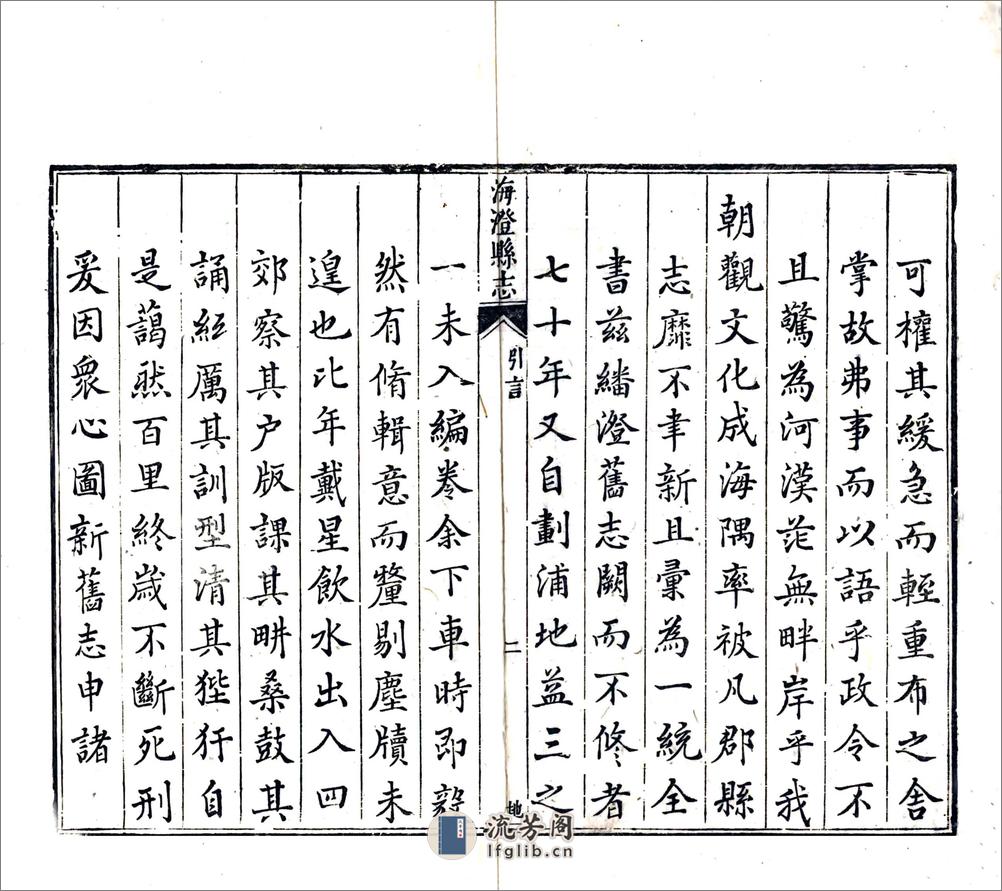 可權其緩急而輕重布之舍
掌故弗事而以語乎政令不
且驚為河漢茫無畔岸乎我
朝觀文化成海隅率被凡郡縣
志靡不聿新且彙為一統全
書茲繙澄舊志闕而不修者
七十年又自劃浦地益三之
海澄縣志
引言
二
地
一未入編卷余下車時即
然有脩輯意而釐剔塵牘未
遑也比年戴星飲水出入四
郊察其戶版課其畊桑鼓其
誦經厲其訓型清其狴犴自
是藹然百里終歲不斷死刑
爰因眾心圖新舊志申諸
流芳阁
lfglib.cn